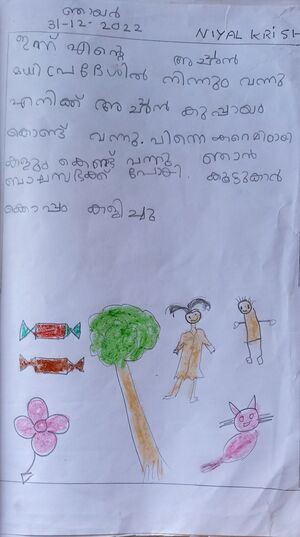 ഞായർ
31-12-2022
NIYAL KRISH
ഇന്ന് എന്റെ അച്ഛൻ
മധ്യപ്രദേശിൽ നിന്നും വന്നു
എനിക്ക് അച്ഛൻ കുപ്പായം
കൊണ്ട് വന്നു. പിന്നെ കുറെ മിഠായി
കളും കൊണ്ട് വന്നു ഞാൻ
ബാലസഭക്ക് പോയി. കൂട്ടുകാർ
ക്കൊപ്പം കളിച്ചു